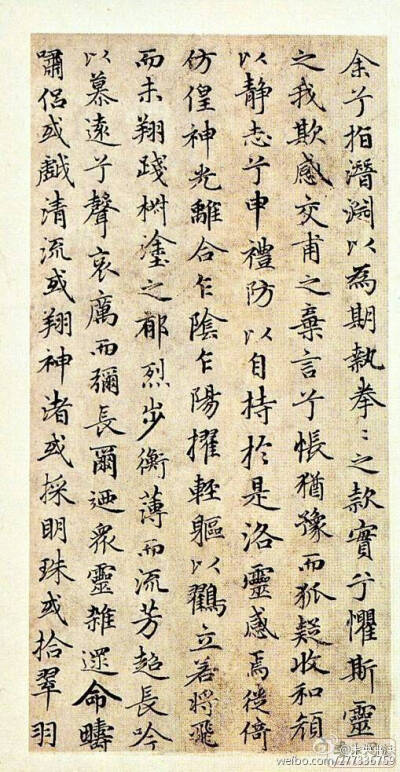 余兮指潛淵以為期執拳〻之款實兮懼斯靈
之我欺感交甫之棄言兮悵猶豫而狐疑收和顏
以静志兮申禮防以自持於是洛靈感焉徙倚
仿偟神光離合乍陰乍陽擢輕軀以鶴立若將飛
而未翔踐椒塗之郁烈步衡薄而流芳超長吟
以慕遠兮聲哀厲而彌長爾迺衆靈雜遝命疇
嘯侣或戲清流或翔神渚或採明珠或拾翠羽
weibo.com/277336759